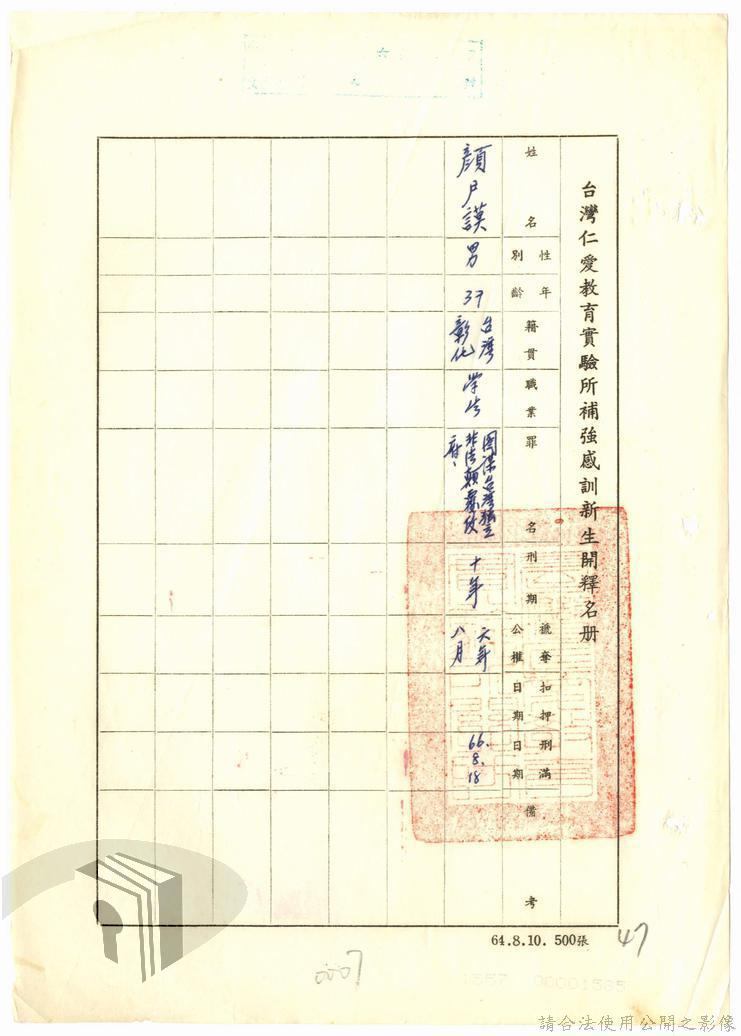 台灣仁愛教育實驗所補強感訓新生開釋名册
姓名
性別
年齡
籍貫
職業
罪名
刑期
褫奪公權
扣押日期
刑滿日期
備考
顏尹謨
男
37
台灣
彰化
學生
圖謀台灣獨立
非法顛覆政
府、
十年
六年
八月
66.8.18
64.8.10. 500張
47
0007
1557 00001585
請合法使用公開之影像